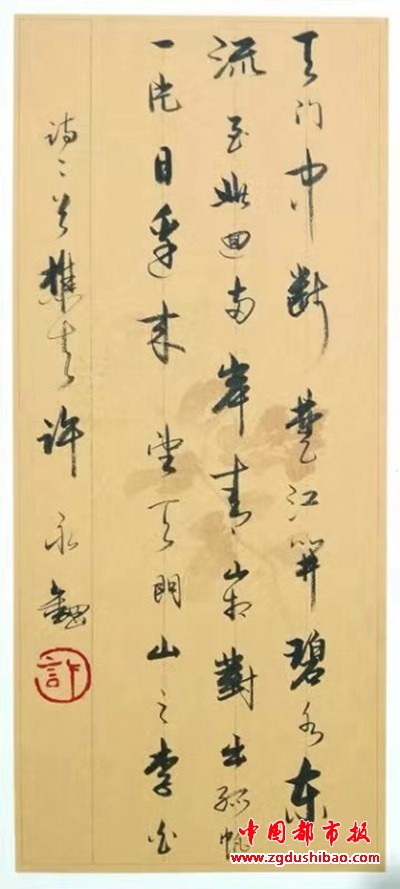 天门中断楚江开碧水东
流至此迴两岸青山相對出孤帆
一片日边来 望天门山之李白
诗 首樵 许永
許
中国都市报
www.zgdushibao.com